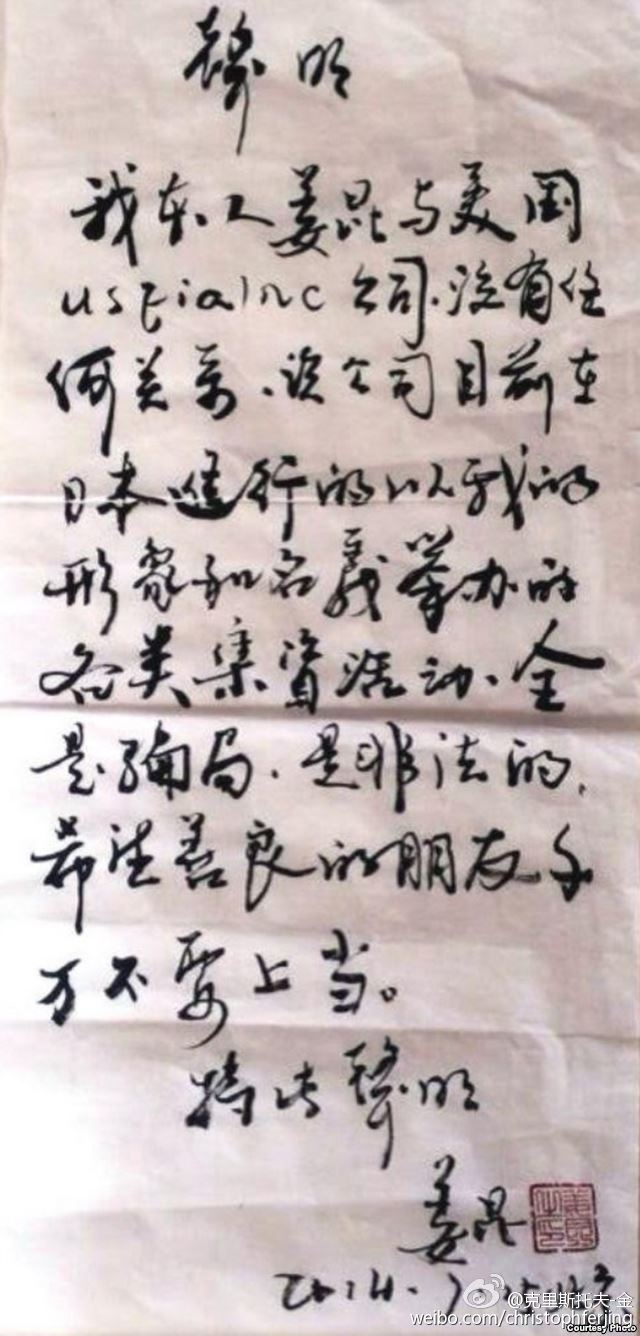 聲明
我本人姜昆与美国
usfia Inc 公司.没有任
何关系.该公司目前在
日本進行的以我的
形象和名義举办的
各类集資活动.全
是骗局.是非法的,
希望善良的朋友千
万不要上当。
特此聲明
姜昆
2014.
@克里斯托夫-金
weibo.com/christophferjing
Courtesy Photo